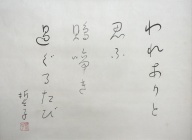 われありと
思ふ
鵙啼き
過ぐるたび
誓子